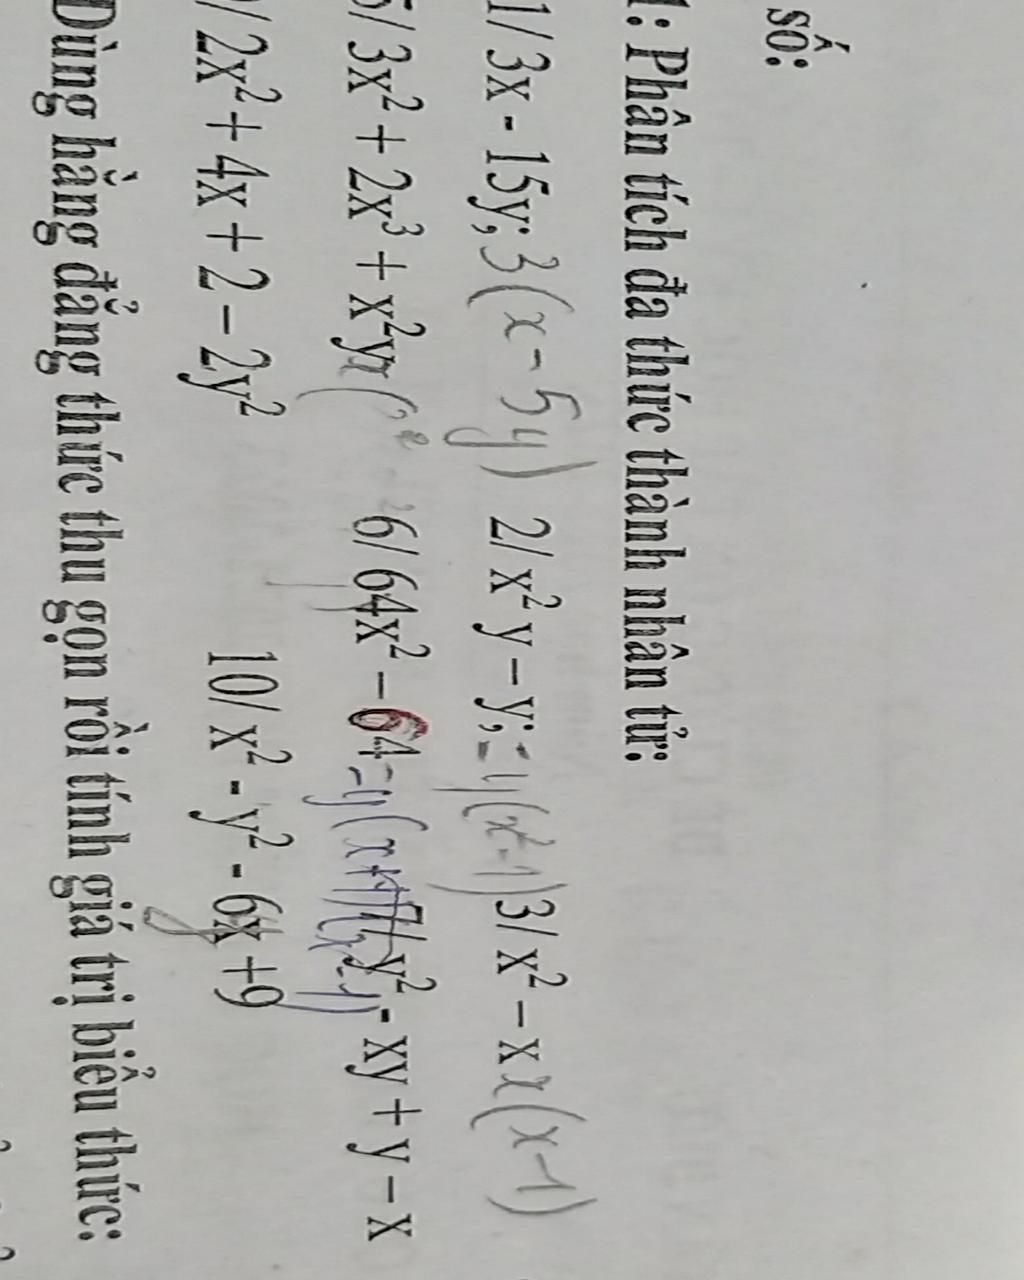 số:
1: Phân tích đa thức thành nhân tử:
1/ 3x - 15y; 3(x-5y) 2/ x² y – y; = y(x²-1) 3/ x² – x x(x-1)
5/ 3x² + 2x³ + x²y 6/ 64x² – 64 = y(x+1)(x-1) 7/ y² - xy + y – x
/ 2x² + 4x + 2 – 2y² 10/ x² - y² - 6x +9
Dùng hằng đẳng thức thu gọn rồi tính giá trị biểu thức: